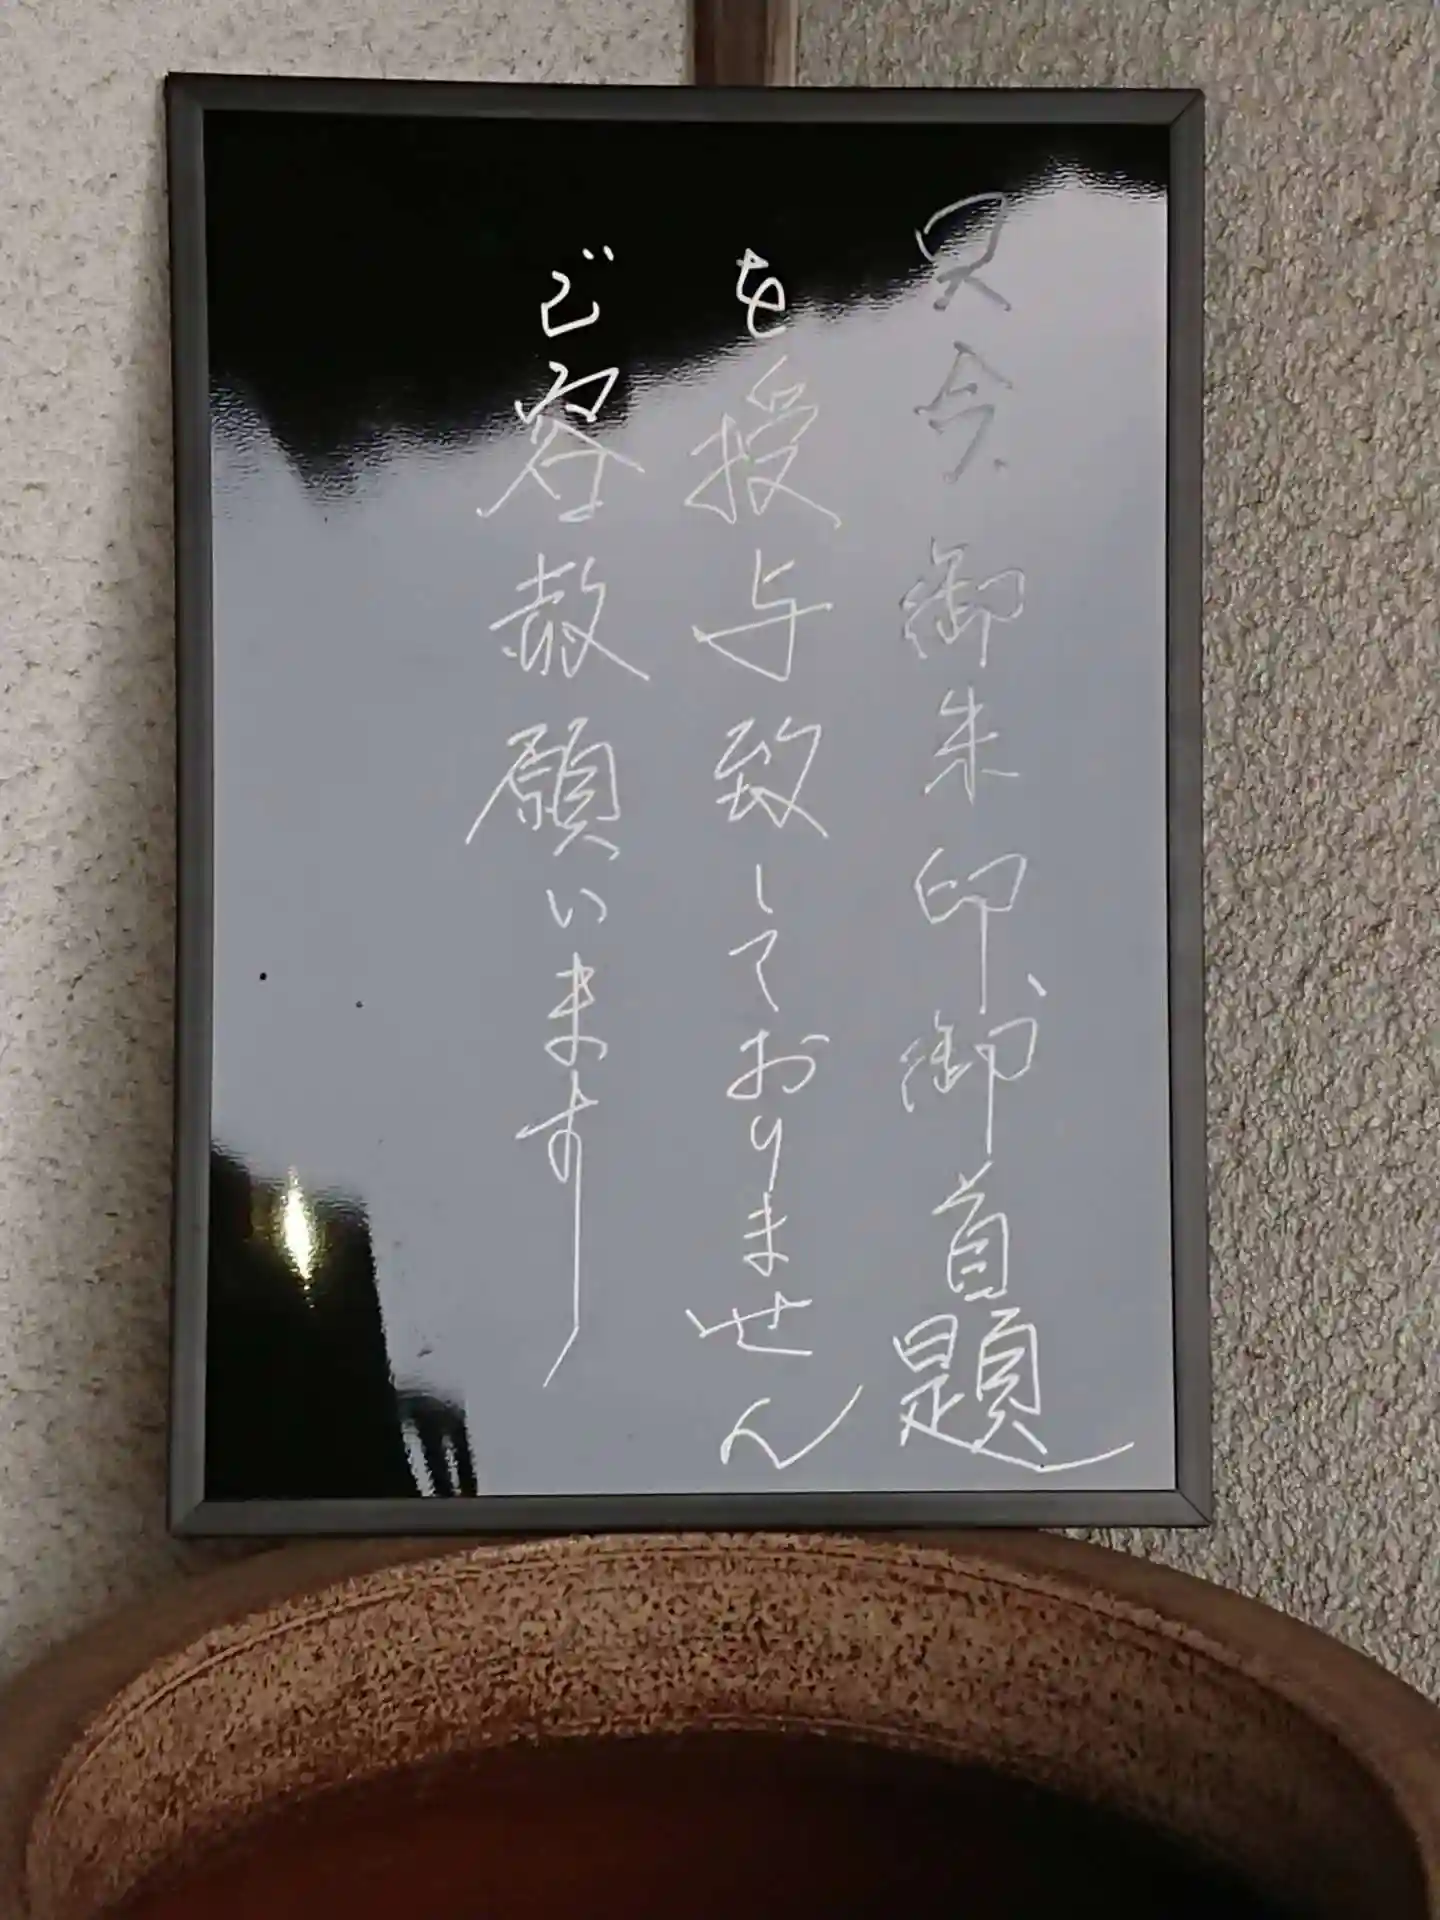 只今御朱印、御首題
を授与致しておりません
ご容赦願います